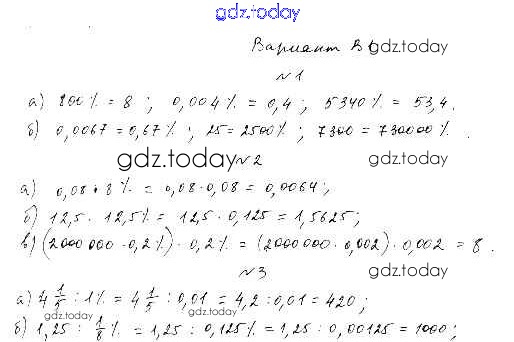 gdz.today
Вариант В1
gdz.today
№1
а) 800% = 8 ; 0,004% = 0,4 ; 5340% = 53,4.
б) 0,0067 = 0,67% ; 25 = 2500% ; 7300 = 730000% .
gdz.today
№2
gdz.today
а) 0,08 · 8% = 0,08 · 0,08 = 0,0064;
б) 12,5 · 12,5% = 12,5 · 0,125 = 1,5625;
в) (2000 000 · 0,2%) · 0,2% = (2000000 · 0,002) · 0,002 = 8 .
№3
gdz.today
а) 4 1/5 : 1% = 4 1/5 : 0,01 = 4,2 : 0,01 = 420 ;
gdz.today
gdz.today
б) 1,25 : 1/8 % = 1,25 : 0,125% = 1,25 : 0,00125 = 1000;